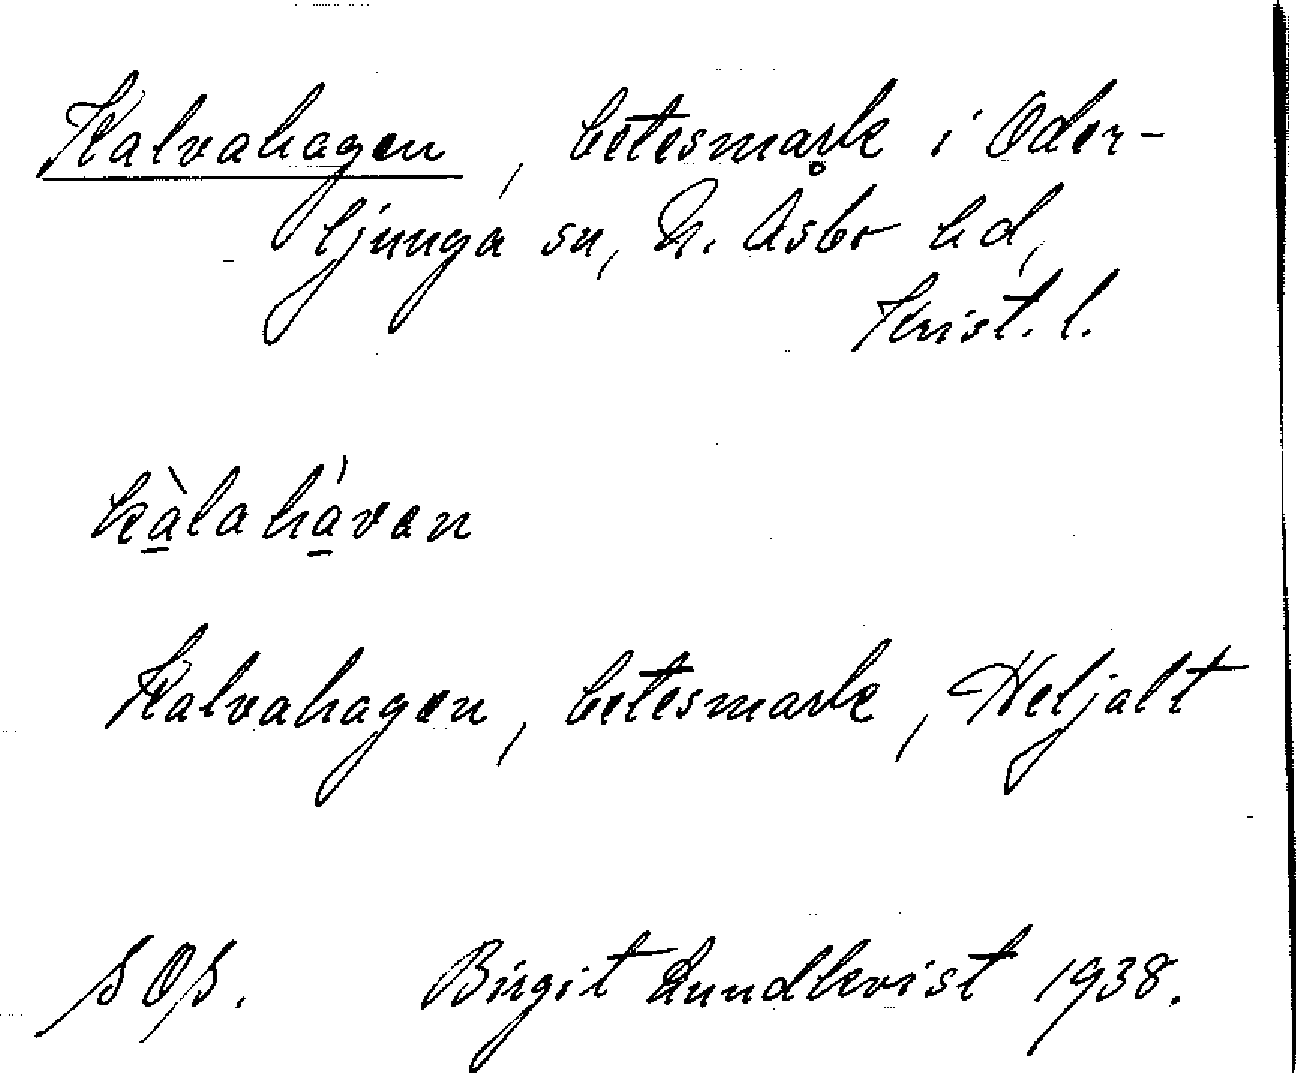 Kalvahagen, betesmark i Oder-
ljunga sn, N. Åsbo hd,
Krist. l.
kàlahávan
Kalvahagen, betesmark, Heljalt
SOS. Birgit Lundkvist 1938.